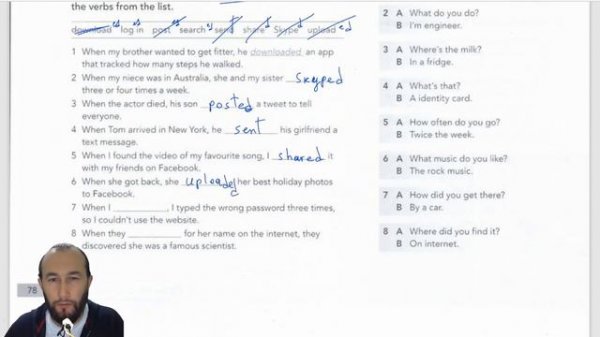 the verbs from the list.
download log in post search send share Skype upload
ed
1 When my brother wanted to get fitter, he downloaded an app
that tracked how many steps he walked.
2 When my niece was in Australia, she and my sister skyped
three or four times a week.
3 When the actor died, his son posted a tweet to tell
everyone.
4 When Tom arrived in New York, he sent his girlfriend a
text message.
5 When I found the video of my favourite song, I shared it
with my friends on Facebook.
6 When she got back, she uploaded her best holiday photos
to Facebook.
7 When I ____________, I typed the wrong password three times,
so I couldn't use the website.
8 When they ____________ for her name on the internet, they
discovered she was a famous scientist.
78
2 A What do you do?
B I'm engineer.
3 A Where's the milk?
B In a fridge.
4 A What's that?
B A identity card.
5 A How often do you go?
B Twice the week.
6 A What music do you like?
B The rock music.
7 A How did you get there?
B By a car.
8 A Where did you find it?
B On internet.